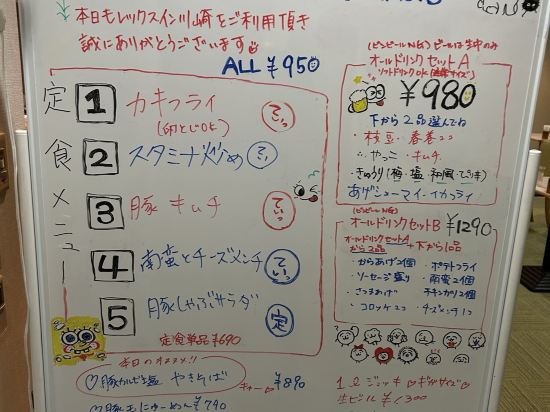 本日もレックスイン川崎をご利用頂き
誠にありがとうございます
ALL ¥950
定食メニュー
1 カキフライ
(卵とじOK)
2 スタミナ炒め
3 豚キムチ
4 南蛮とチーズメンチ
5 豚しゃぶサラダ 定
定食単品¥690
本日のオススメ!!
♡豚カルビ塩やきそば
¥890
¥790
(ビンビールNG) ビールは生中のみ
オールドリンクセットA
ソフトドリンクOK
¥980
下から2品選んでね
・枝豆・春巻2コ
・やっこ・キムチ
・きゅうり(梅・塩・和風
あげシューマイ・イカフライ
(ビンビールNG)
オールドリンクセットB ¥1290
オールドリンクセットA
から2品 + 下から1品
・からあげ2個 ・ポテトフライ
・ソーセージ盛り ・南蛮2個
・さつまあげ ・チキンカツ2個
・コロッケ2コ ・チーズメンチ1コ
1ℓジョッキ♡ギガサイズ♡
生ビール ¥1300